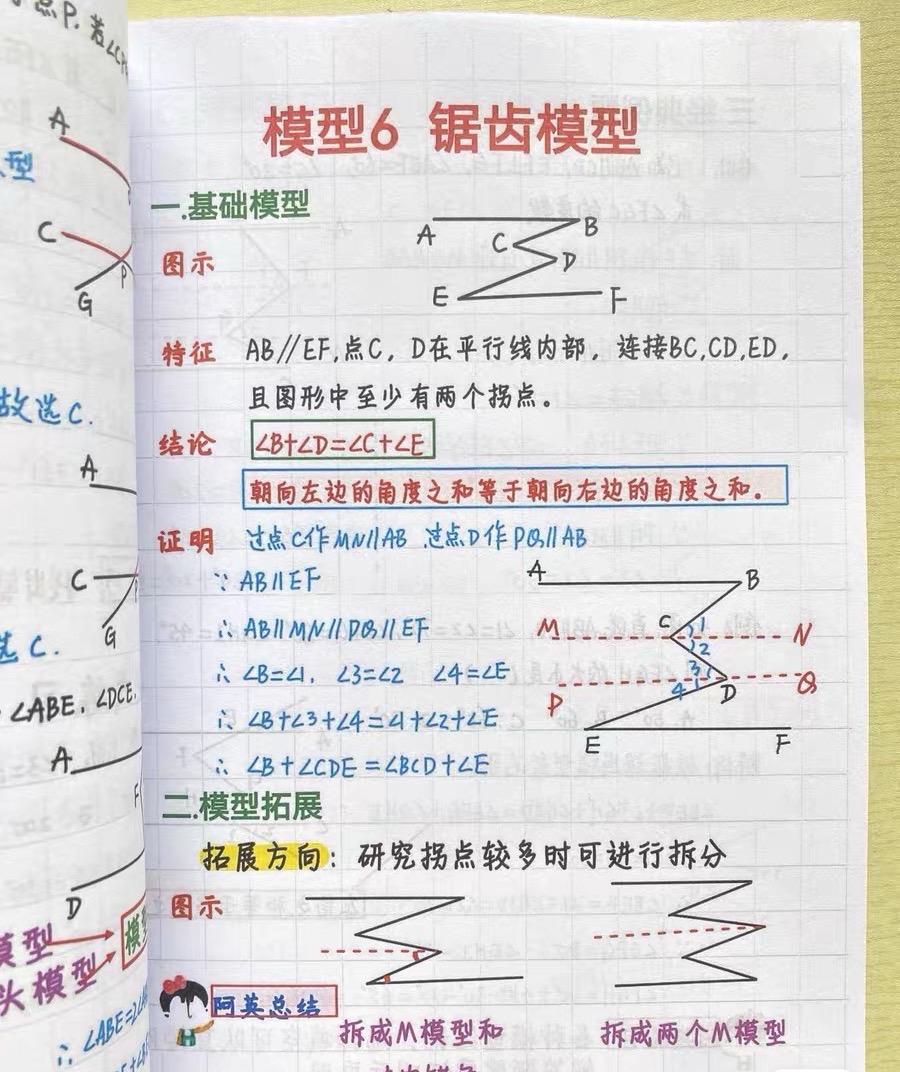 点P. 若∠CP
A
型
C
P
G
故选C.
A
C
G
选C.
∠ABE, ∠DCE,
A
F
D
模型
头模型
模型
∴ ∠ABE=2∠A
模型6 锯齿模型
一.基础模型
图示
A B
C D
E F
特征 AB//EF,点C, D在平行线内部, 连接BC,CD,ED,
且图形中至少有两个拐点。
结论 ∠B+∠D=∠C+∠E
朝向左边的角度之和等于朝向右边的角度之和.
证明 过点C作MN//AB 过点D作PQ//AB
∵ AB//EF
∴ AB//MN//PQ//EF
∴ ∠B=∠1, ∠3=∠2 ∠4=∠E
∴ ∠B+∠3+∠4=∠1+∠2+∠E
∴ ∠B+∠CDE=∠BCD+∠E
A B
M C 1 N
2
3
P 4 D Q
E F
二.模型拓展
拓展方向: 研究拐点较多时可进行拆分
图示
阿英总结
拆成M模型和 拆成两个M模型